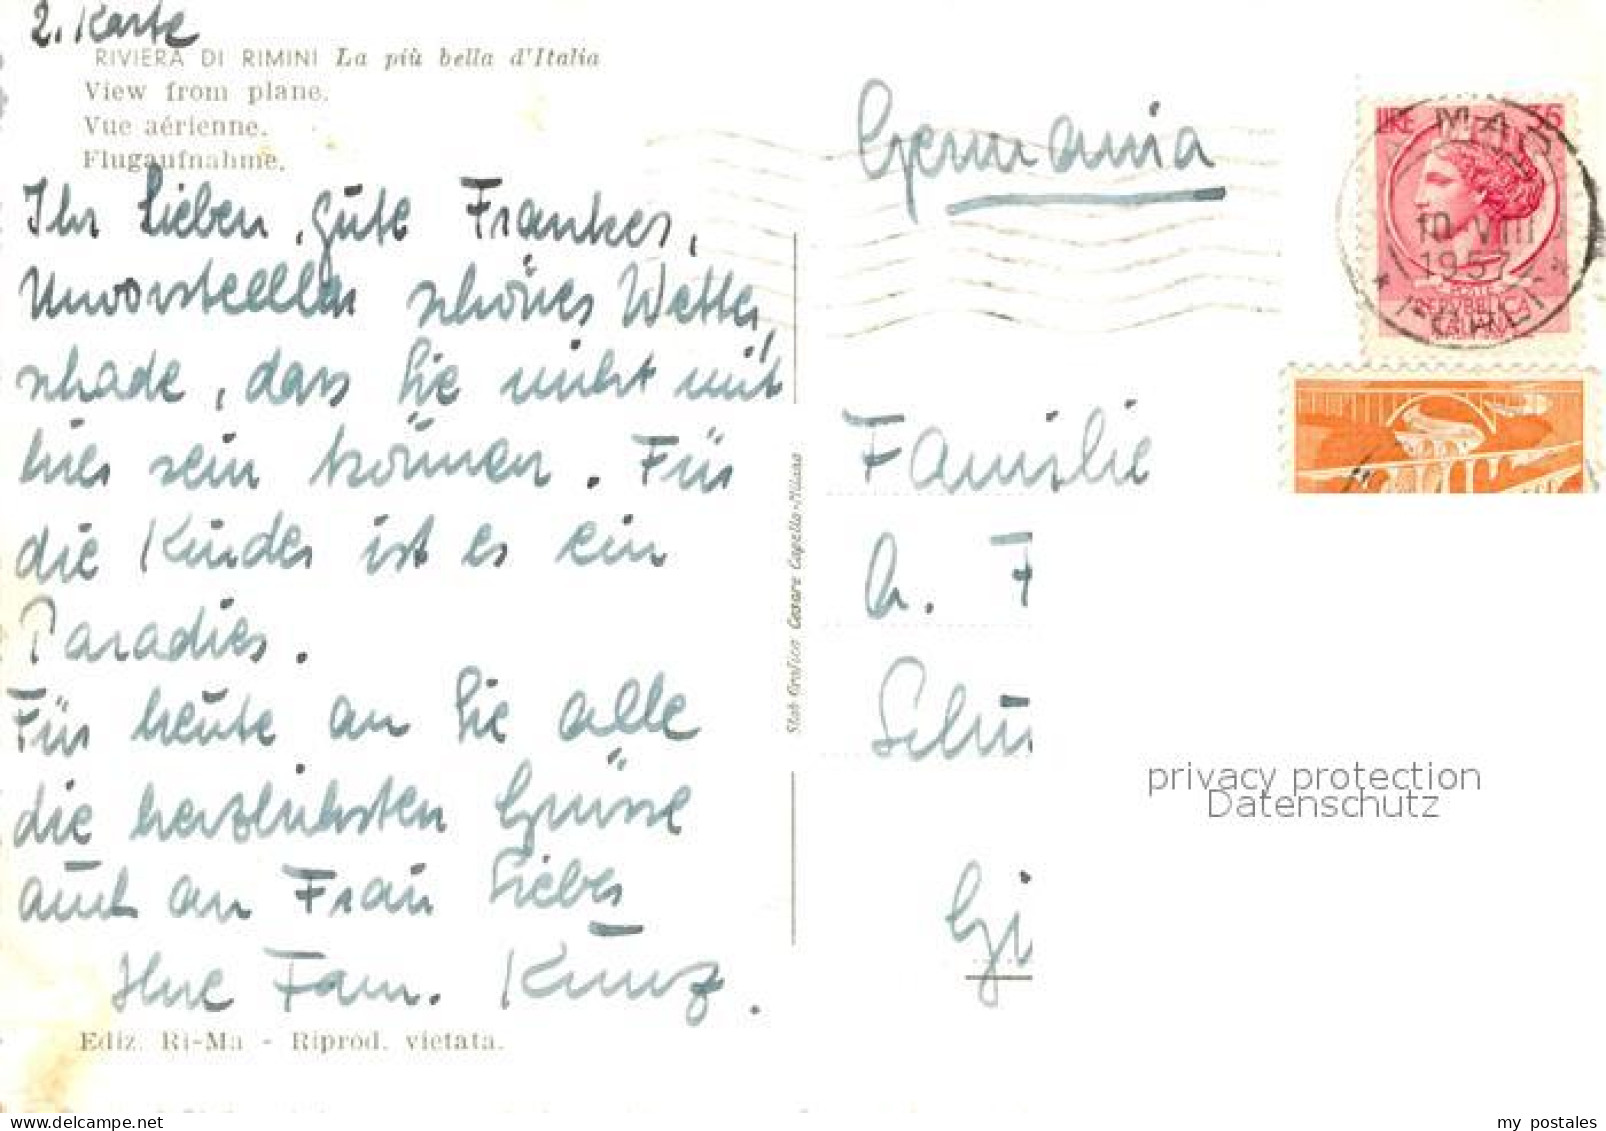 2. Karte
RIVIERA DI RIMINI La più bella d'Italia
View from plane.
Vue aérienne.
Flugaufnahme.
Ihr Lieben, gute Frankes,
Unvorstellbar schönes Wetter,
schade, dass Sie nicht mit
hier sein können. Für
die Kinder ist es ein
Paradies.
Für heute an Sie alle
die herzlichsten Grüsse
auch an Frau Lieber
Ihre Fam. Kunz.
Ediz. Ri-Ma - Riprod. vietata.
Stab Grafico Cesare Capello-Milano
Germania
LIRE
10 VIII
1957
POSTE
REPUBBLICA
ITALIANA
Familie
F
Gi
privacy protection
Datenschutz
my postales